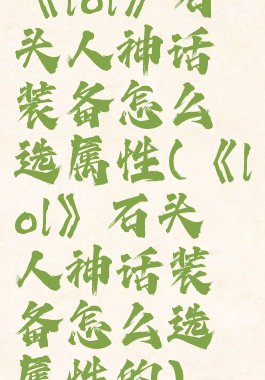 《lol》石
头人神话
装备怎么
选属性(《l
ol》石头
人神话装
备怎么选
属性的)